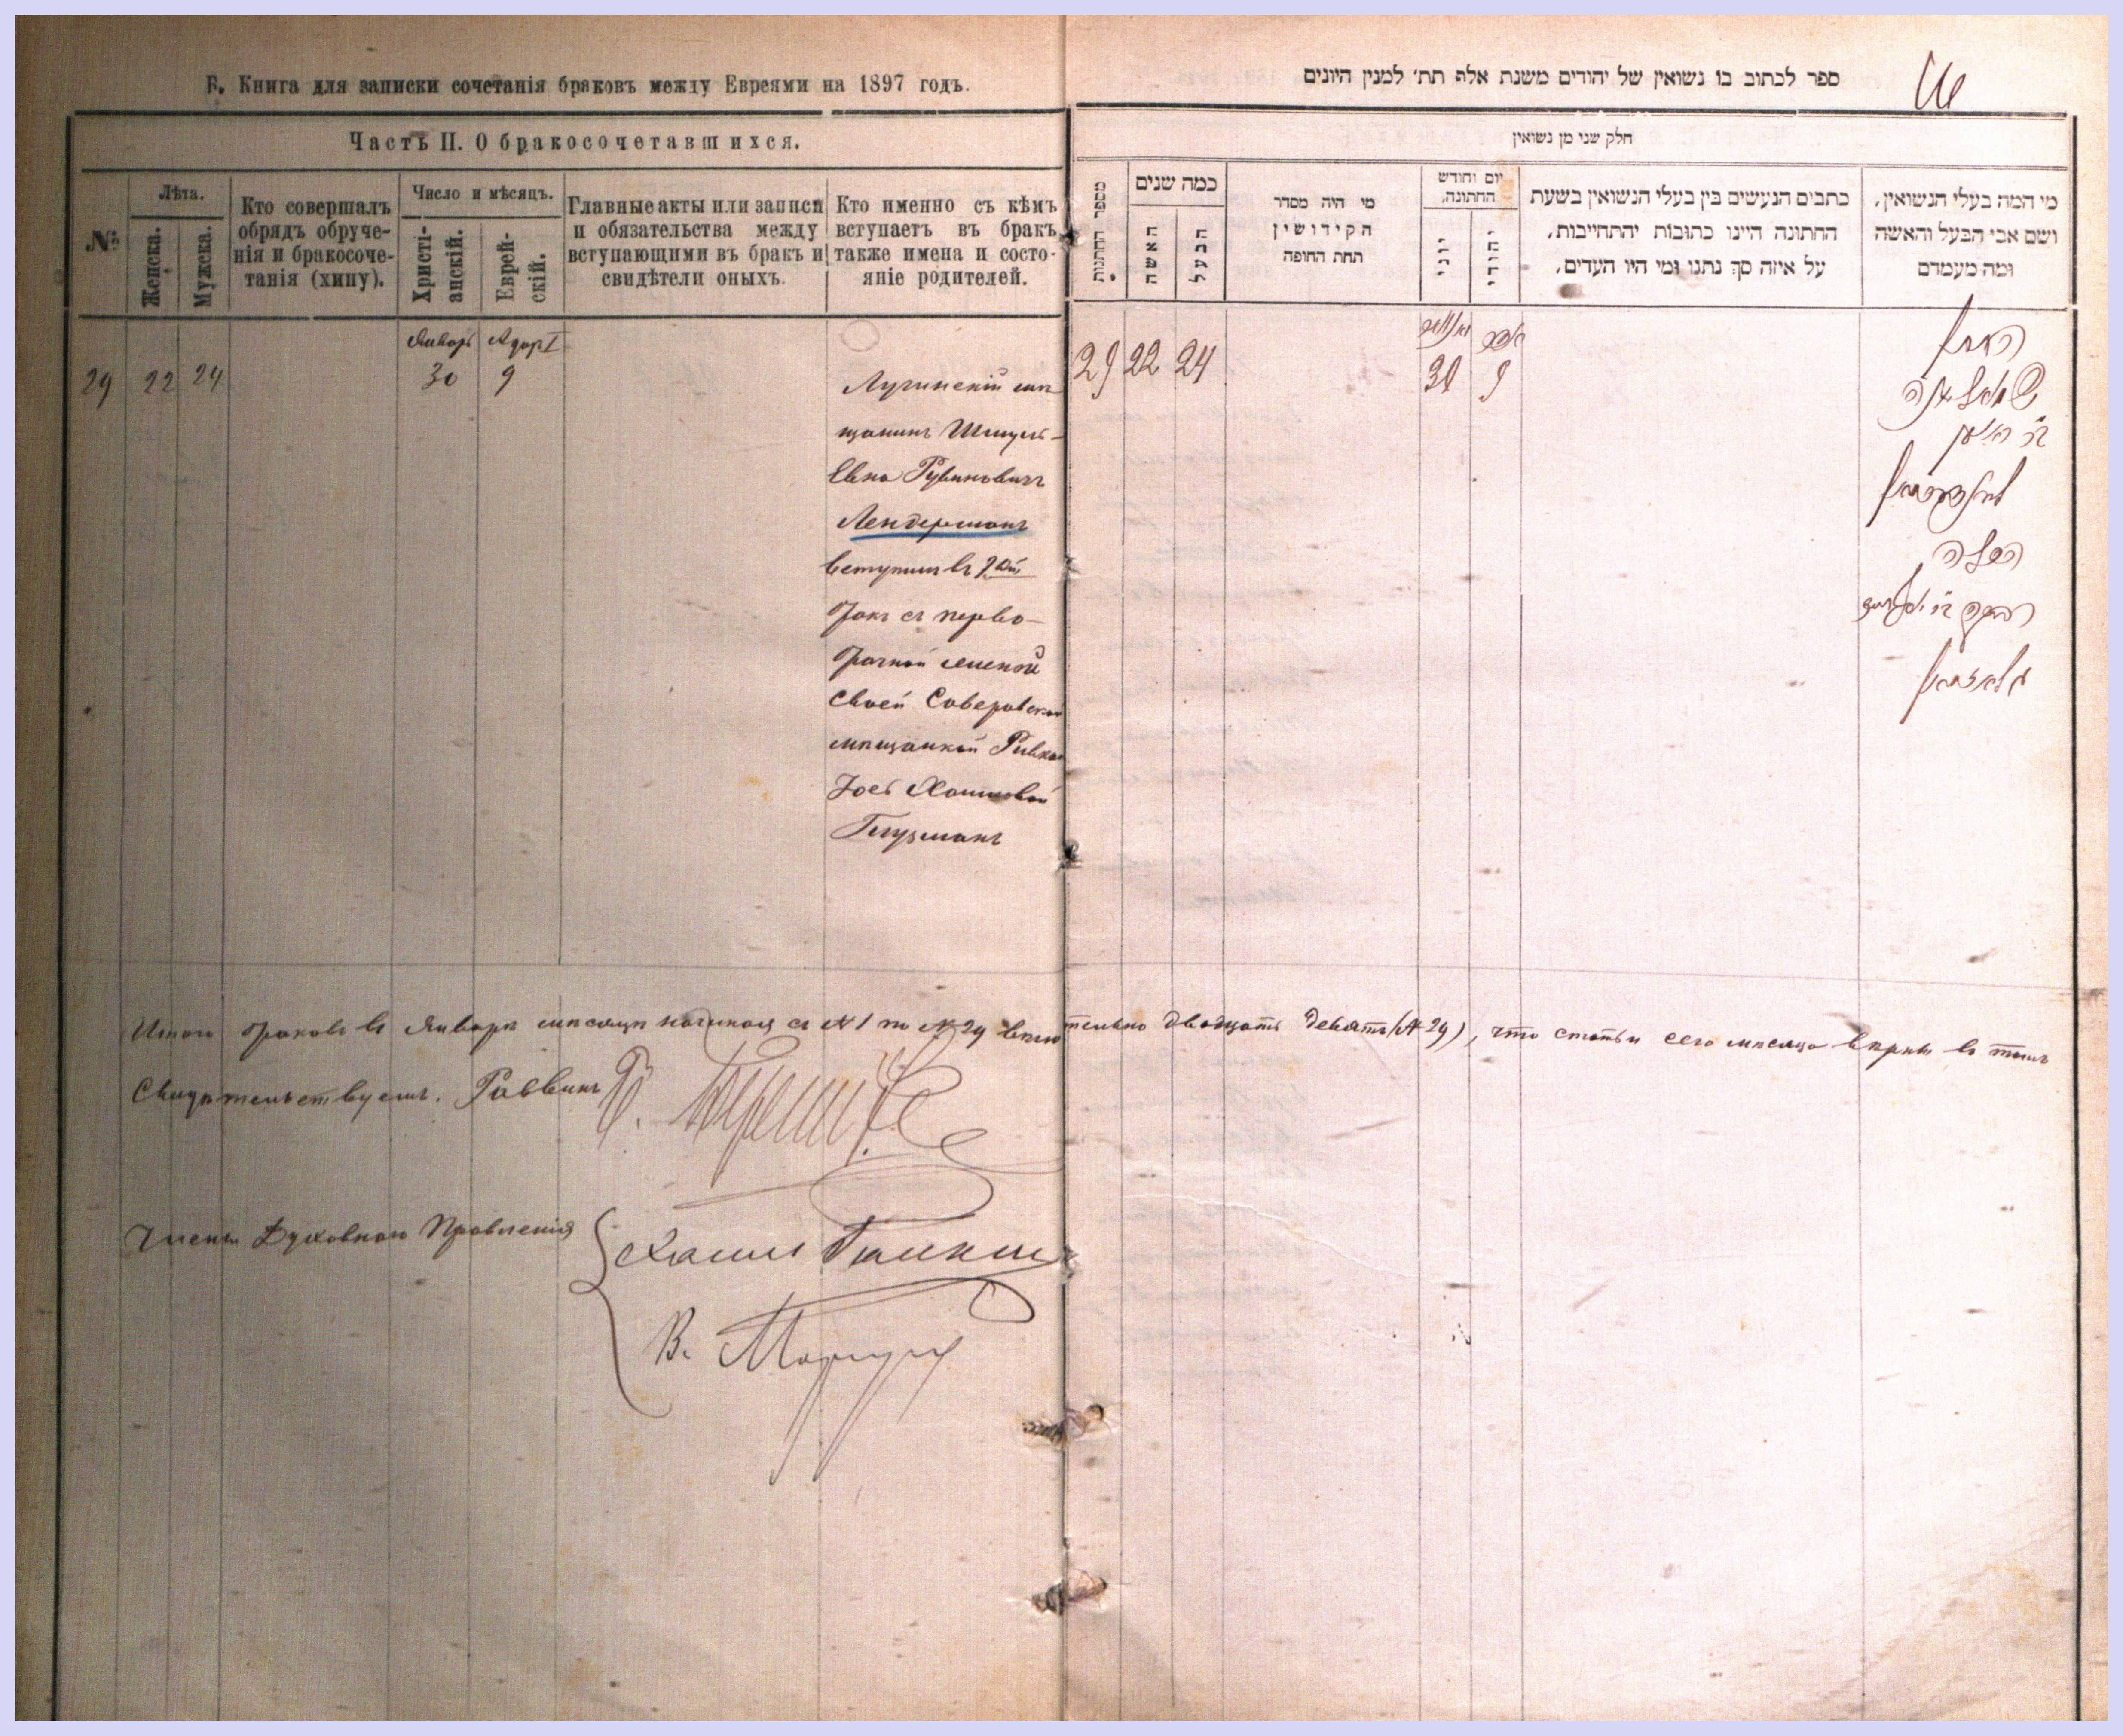 Б. Книга для записки сочетанія браковъ между Евреями на 1897 годъ.
Часть II. О бракосочетавшихся.
№
Лѣта.
Женска.
Мужска.
Кто совершалъ
обрядъ обруче-
нія и бракосоче-
танія (хипу).
Число и мѣсяцъ.
Христі-
анскій.
Еврей-
скій.
Главные акты или записи
и обязательства между
вступающими въ бракъ и
свидѣтели оныхъ.
Кто именно съ кѣмъ
вступаетъ въ бракъ
также имена и состо-
яніе родителей.
29 22 24
Январь Адаръ I
30 9
Лугинскій мѣ
щанинъ Шмуль-
Евна Рувиновичъ
Лендерманъ
вступилъ въ 1ый
бракъ съ перво-
брачной женой
своей
мѣщанкой Ривка
Хаимовой
Глузманъ
Итого браковъ въ Январѣ мѣсяцѣ начиная съ № 1 по № 29 включительно двадцать девять (№ 29), что статьи сего мѣсяца вѣрны въ томъ
Свидѣтельствуемъ. Раввинъ
Члены Духовнаго Правленія
Хаимъ
В.
ספר לכתוב בו נשואין של יהודים משנת אלף תת׳ למנין היונים
חלק שני מן נשואין
מספר החתונות
כמה שנים
האשה
הבעל
מי היה מסדר
הקידושין
תחת החופה
יום וחודש
החתונה.
יוני
יהודי
כתבים הנעשים בין בעלי הנשואין בשעת
החתונה היינו כתובות יהתחייבות,
על איזה סך נתנו ומי היו העדים,
מי המה בעלי הנשואין,
ושם אבי הבעל והאשה
ומה מעמדם
29 22 24
אדר
30 9
החתן
לענדערמאן
הכלה
גלוזמאן